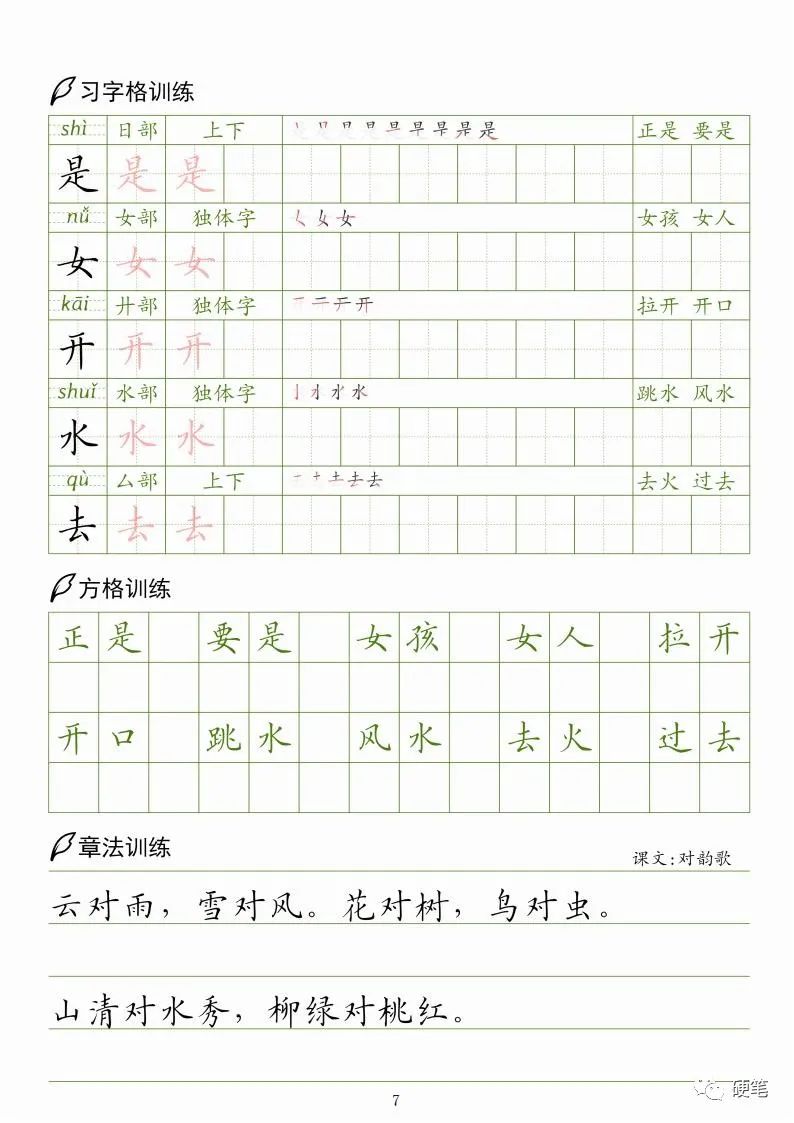 习字格训练
shì 日部 上下 正是 要是
是 是 是
nǚ 女部 独体字 女孩 女人
女 女 女
kāi 廾部 独体字 拉开 开口
开 开 开
shuǐ 水部 独体字 跳水 风水
水 水 水
qù 厶部 上下 去火 过去
去 去 去
方格训练
正是 要是 女孩 女人 拉开
开口 跳水 风水 去火 过去
章法训练
课文:对韵歌
云对雨，雪对风。花对树，鸟对虫。
山清对水秀，柳绿对桃红。
硬笔
7